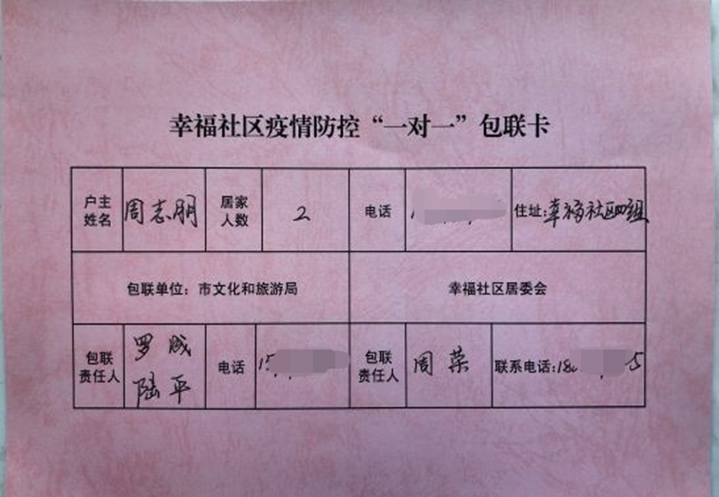 幸福社区疫情防控“一对一”包联卡
户主姓名 周志朋 居家人数 2 电话 住址:幸福社区四组
包联单位：市文化和旅游局 幸福社区居委会
包联责任人 罗成 陆平 电话 包联责任人 周荣 联系电话: